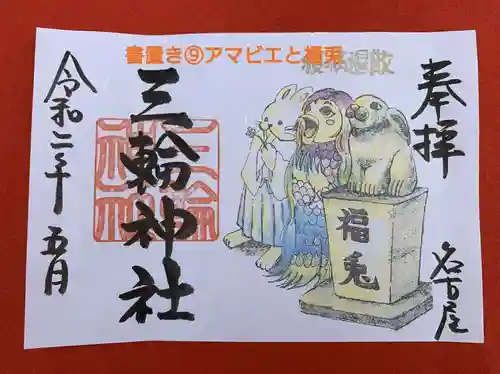 書置き⑨アマビエと福兎
疫病退散
奉拝
名古屋
福兎
三輪神社
三輪神社
令和二年五月